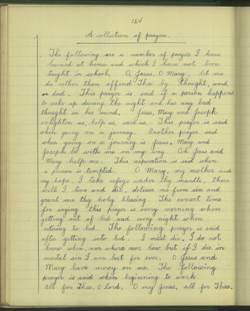 184
A collection of prayers.
The following are a number of prayers I have
learned at home and which I have not been
taught in school. O Jesus, O Mary. Let me
die rather than offend Thee by thought, word,
or deed. This prayer is said if a person happens
to wake up during the night and has any bad
thought in his mind. Jesus, Mary and Joseph
enlighten us, help us, save us. This prayer is said
when going on a journey. Another prayer said
when going on a journey is Jesus, Mary and
Joseph be with me on my way. Oh Jesus and
Mary help me. This aspiration is said when
a person is tempted. O Mary, my mother and
my hope, I take refuge under thy mantle, there
will I love and die, deliver me from sin and
grant me thy holy blessing. The correct time
for saying this prayer is every morning when
getting out of bed and every night when
retiring to bed. The following prayer is said
after getting into bed. I must die, I do not
know when, nor where nor how but if I die in
mortal sin I am lost for ever. O Jesus and
Mary have mercy on me. The following
prayer is said when beginning to work
All for Thee, O Lord, O my Jesus, all for Thee.